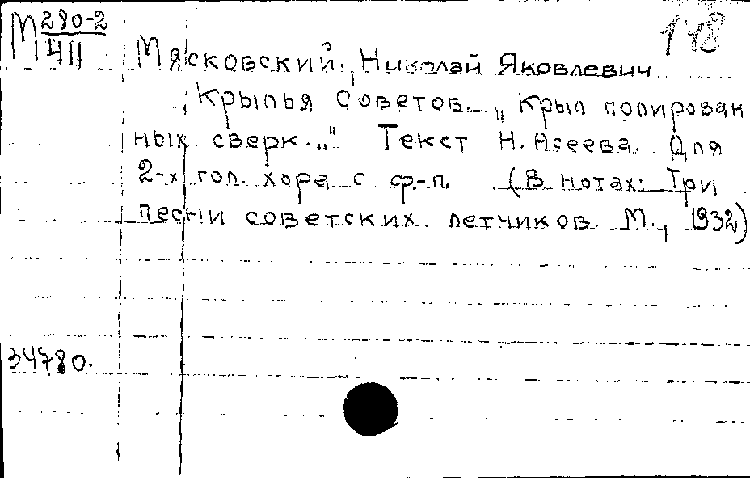 М 280-2
411
148
Мясковский, Николай Яковлевич
„Крылья Советов. „Крыл полирован
ных сверк..." Текст Н. Асеева. Для
2-х гол. хора с ф.-п. (В нотах: Три
песни советских летчиков. М., 1932)
34780.